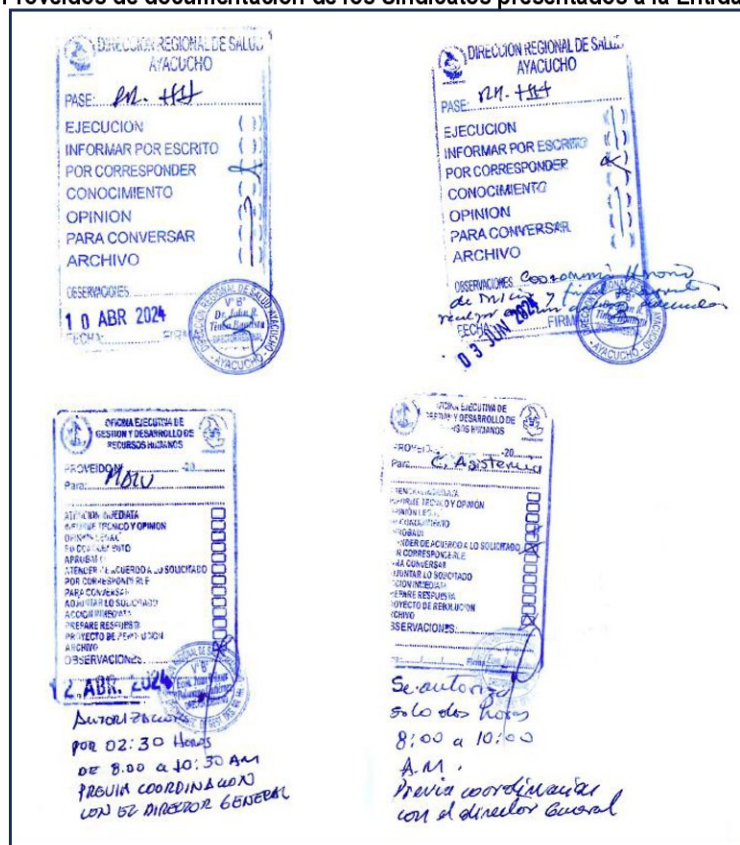 Proveídos de documentación de los Sindicatos presentados a la Entida
DIRECCION REGIONAL DE SALUD
AYACUCHO
PASE:
EJECUCION ( )
INFORMAR POR ESCRITO ( )
POR CORRESPONDER
CONOCIMIENTO ( )
OPINION ( )
PARA CONVERSAR ( )
ARCHIVO ( )
OBSERVACIONES
10 ABR 2024
FECHA: FIRMA
V° B°
DIRECCION REGIONAL DE SALUD AYACUCHO
DIRECCION REGIONAL DE SALUD
AYACUCHO
PASE:
EJECUCION ( )
INFORMAR POR ESCRITO ( )
POR CORRESPONDER
CONOCIMIENTO ( )
OPINION ( )
PARA CONVERSAR ( )
ARCHIVO ( )
OBSERVACIONES
de inicio y
FECHA FIRM
03 JUN 2024
AYACUCHO
OFICINA EJECUTIVA DE
GESTION Y DESARROLLO DE
RECURSOS HUMANOS
PROVEIDO N° -20
Para:
ATENCION INMEDIATA
INFORME TECNICO Y OPINION
OPINION LEGAL
SU CONOCIMIENTO
APROBADO
ATENDER DE ACUERDO A LO SOLICITADO
POR CORRESPONDERLE
PARA CONVERSAR
ADJUNTAR LO SOLICITADO
ACCION INMEDIATA
PREPARE RESPUESTA
PROYECTO DE RESOLUCION
ARCHIVO
OBSERVACIONES
2 ABR. 2024
V° B°
AUTORIZACION
POR 02:30 HORAS
DE 8.00 a 10:30 AM
PREVIA COORDINACION
CON EL DIRECTOR GENERAL
OFICINA EJECUTIVA DE
GESTION Y DESARROLLO DE
RECURSOS HUMANOS
PROVEIDO -20
Para: C. Asistencia
ATENCION INMEDIATA
INFORME TECNICO Y OPINION
OPINION LEGAL
SU CONOCIMIENTO
APROBADO
ATENDER DE ACUERDO A LO SOLICITADO
POR CORRESPONDERLE
PARA CONVERSAR
ADJUNTAR LO SOLICITADO
ACCION INMEDIATA
PREPARE RESPUESTA
PROYECTO DE RESOLUCION
ARCHIVO
OBSERVACIONES
Se autoriza
solo dos horas
8:00 a 10:00
A.M.
Previa coordinación
con el director General